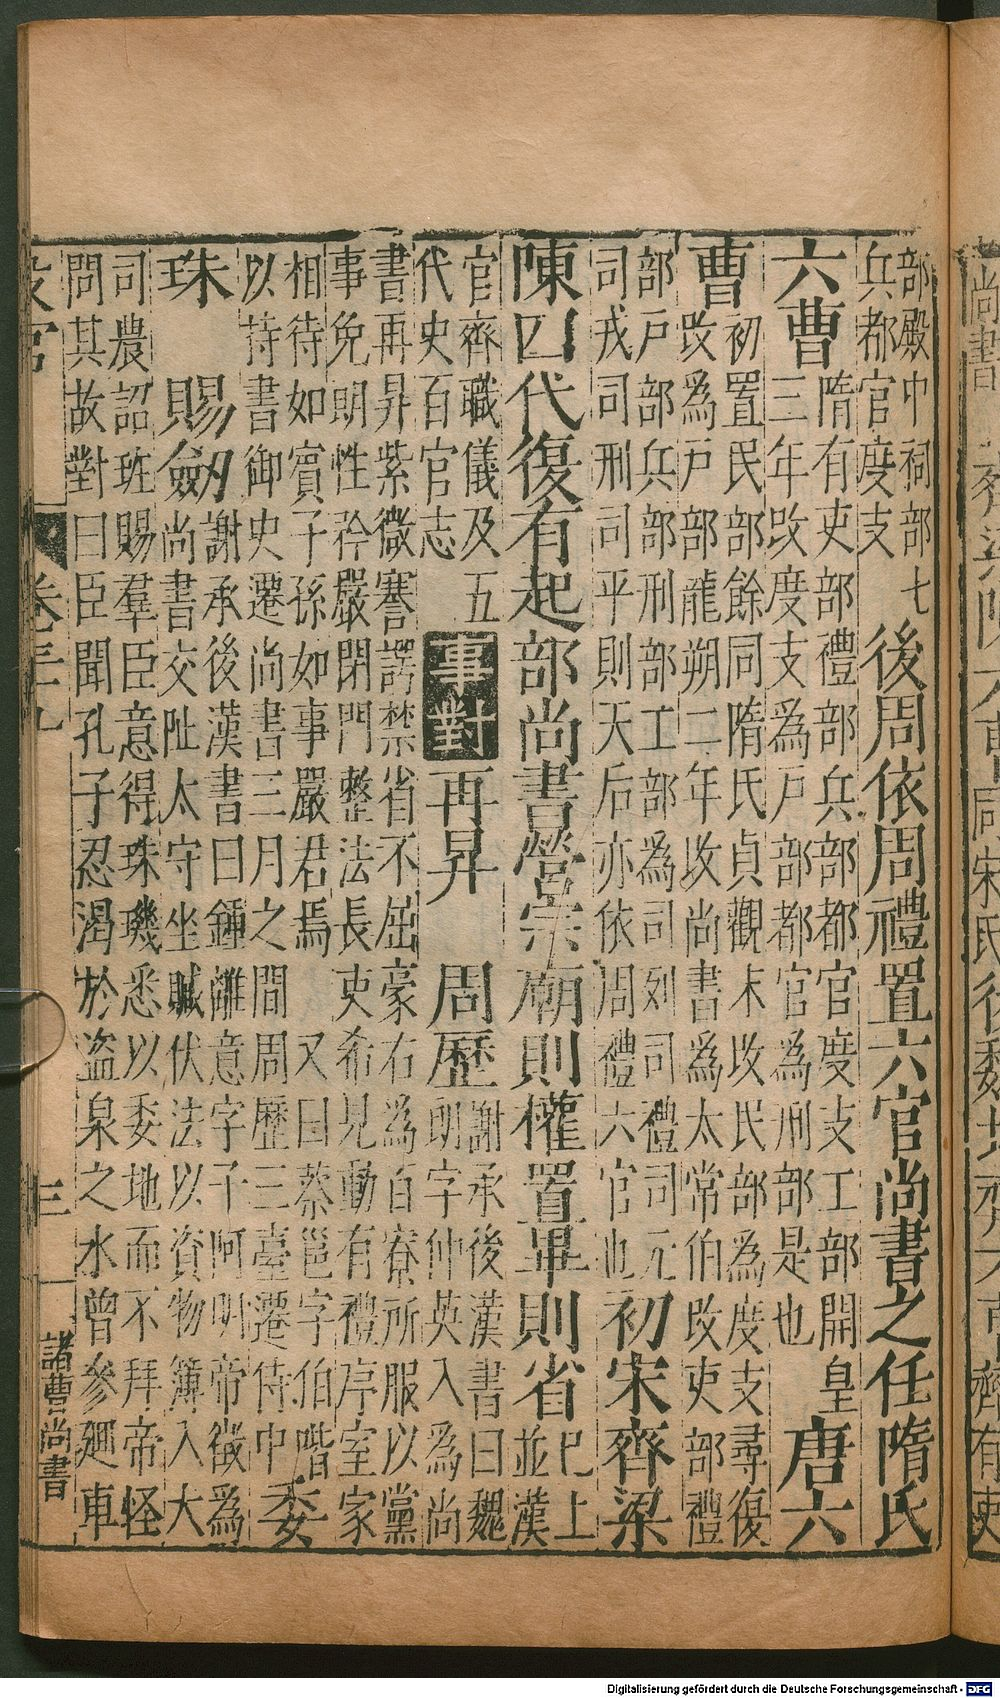 部殿中祠部七兵都官度支後周依周禮置六官尚書之任隋氏
六曹隋有吏部禮部兵部都官度支工部開皇三年改度支為戶部都官為刑部是也唐六
曹初置民部餘同隋氏貞觀末改民部為度支尋復改為戶部龍朔二年改尚書為太常伯改吏部禮
部戶部兵部刑部工部為司列司禮司元司戎司刑司平則天后亦依周禮六官也初宋齊梁
陳四代復有起部尚書營宗廟則權置畢則省巳上並漢
官齊職儀及五代史百官志 事對 再昇 周歷謝承後漢書曰魏朗字仲英入為尚
書再昇紫微謇諤禁省不屈豪右為百寮所服以黨事免朗性矜嚴閉門整法長吏希見動有禮序室家
相待如賓子孫如事嚴君焉 又曰蔡邕字伯喈以持書御史遷尚書三月之間周歷三臺遷侍中委
珠 賜劒謝承後漢書曰鍾離意字子阿明帝徵為尚書交阯太守坐贓伏法以資物簿入大
司農詔班賜羣臣意得珠璣悉以委地而不拜帝怪問其故對曰臣聞孔子忍渴於盗泉之水曾參廻車
設官 卷三九 三 諸曹尚書
Digitalisierung gefördert durch die Deutsche Forschungsgemeinschaft - DFG